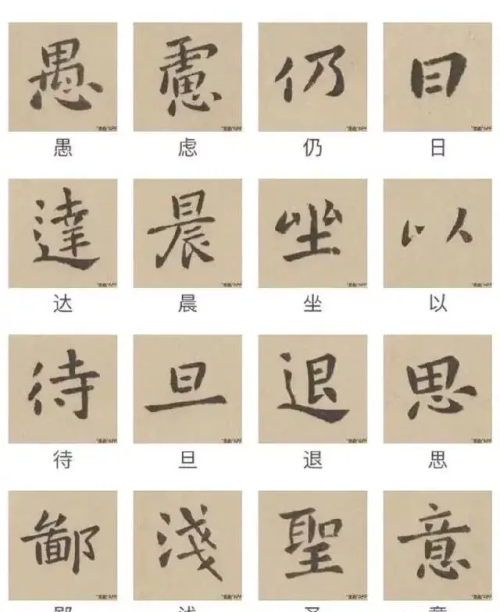 愚 慮 仍 日
愚 虑 仍 日
達 晨 坐 以
达 晨 坐 以
待 旦 退 思
待 旦 退 思
鄙 淺 聖 意
鄙 浅 圣 意